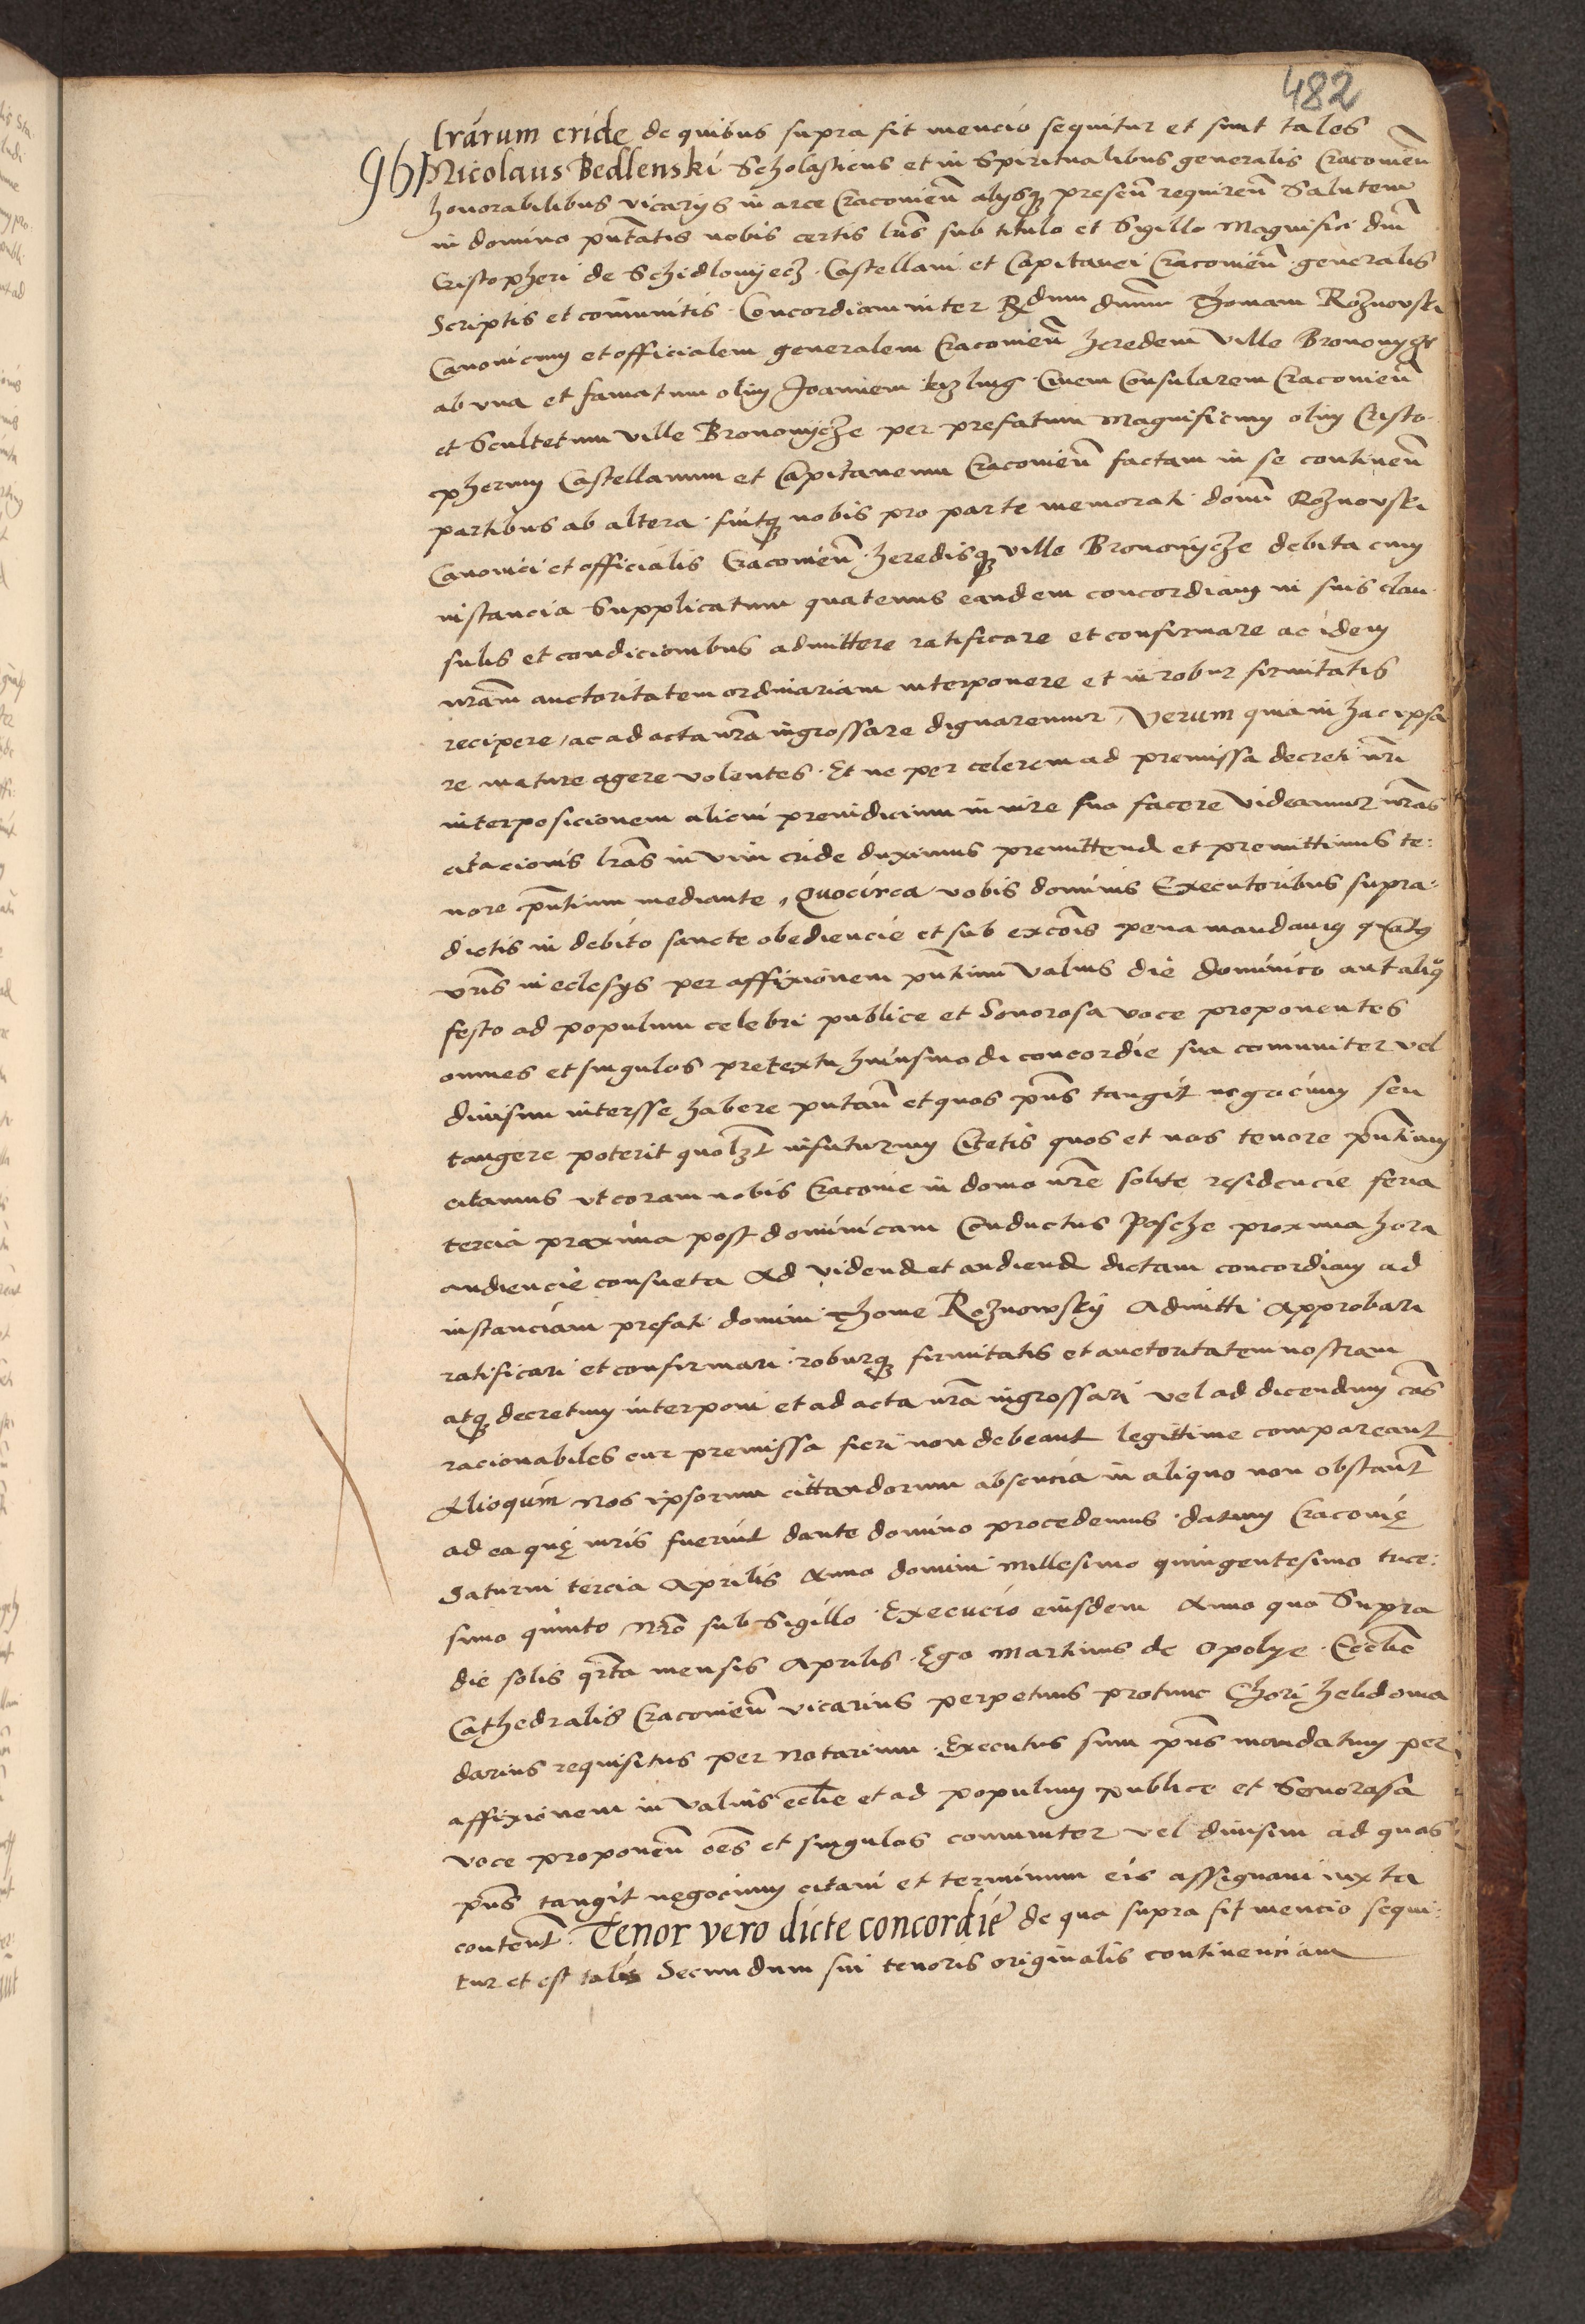 482
96)
lrarum cride de quibus supra fit mencio sequitur et sunt tales
Nicolaus Bedlenski Scholasticus et in Spiritualibus generalis Cracovien̄
honorabilibus vicarijs in arce Cracovien̄ alijsqȝ presen̄ requiren̄ Salutem
in domino pn̄tatis nobis certis lrīs sub titulo et Sigillo Magnifici dnī
Cristopheri de Schidlovijecz Castellani et Capitanei Cracovien̄ generalis
Scriptis et comunitis Concordiam inter Rdum dnūm Thomam Roznovski
Canonicum et officialem generalem Cracovien̄ heredem ville Bronovycze
ab una et famatum olim Joannem kyzling Civem Consularem Cracovien̄
et Scultetum ville Bronovycze per prefatum Magnificum olim Cristo
pherum Castellanum et Capitaneum Cracovien̄ factam in se continen̄
partibus ab altera fuitqȝ nobis pro parte memorati domi Roznovski
Canonici et officialis Cracovien̄ heredisqȝ ville Bronovycze debita cum
instancia Supplicatum quatenus eandem concordiam in suis clau
sulis et condicionibus admittere ratificare et confirmare ac idem
nrām auctoritatem ordinariam interponere et in robur firmitatis
recipere / ac ad acta nrā ingrossare dignaremur / Verum quia in hac ipsa
re mature agere volentes. Et ne per celerem ad premissa decreti nrī
interposicionem alicui preiudicium in iure suo facere videamur nrās
citacionis lrās in vim cride duximus premittend et premittimus te:
nore pn̄tium mediante, Quocirca vobis dominis Executoribus supra:
dictis in debito sancte obediencie et sub excōis pena mandamus qua
vrīs in eclesijs per affixionem pn̄tium valvis die dominico aut aliq̊
festo ad populum celebri publice et Sonorosa voce proponentes
omnes et singulos pretextu huiusmodi concordie sua comuniter vel
divisim intersse habere putan̄ et quos pn̄s tangit negocium seu
tangere poterit quolȝt infuturum Citetis quos et nos tenore pn̄tium
citamus ut coram nobis Cracovie in domo nrē solite residencie feria
tercia proxima post dominicam Conductus Pasche proxima hora
audiencie consueta Ad vidend et audiend dictam concordiam ad
instanciam prefati domini Thome Roznowskij Admitti Approbari
ratificari et confirmari roburqȝ firmitatis et auctoritatem nostram
atqȝ decretum interponi et ad acta nrā ingrossari vel ad dicendum cās
racionabiles cur premissa fieri non debeant legittime compareant
Alioquim Nos ipsorum cittandorum absencia in aliquo non obstant̄
ad ea quę iuris fuerint dante domino procedemus. datum Cracovię
Saturni tercia Aprilis Anno domini Millesimo quingentesimo trice:
simo quinto Nrō sub Sigillo. Execucio eiusdem Anno quo Supra
die solis qrta mensis Aprilis. Ego Martinus de Opolye. Ecclīe
Cathedralis Cracovien̄ vicarius perpetuus protunc Chori hebdoma
darius requisitus per Notarium. Executus sum pn̄s mandatum per
affixionem in valvis eclīe et ad populum publice et Sonorosa
voce proponen̄ oēs et singulos comuniter vel divisim ad quos
pn̄s tangit negocium citavi et terminum eis assignavi iuxta
content̄. Tenor vero dicte concordie de qua supra fit mencio sequi:
tur et est talis Secundum sui tenoris originalis continenciam